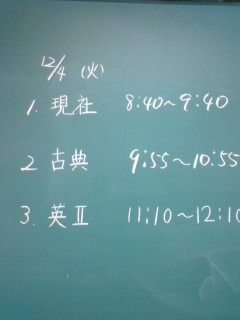 12/4 (火)
1. 現社 8:40~9:40
2 古典 9:55~10:55
3. 英Ⅱ 11:10~12:10